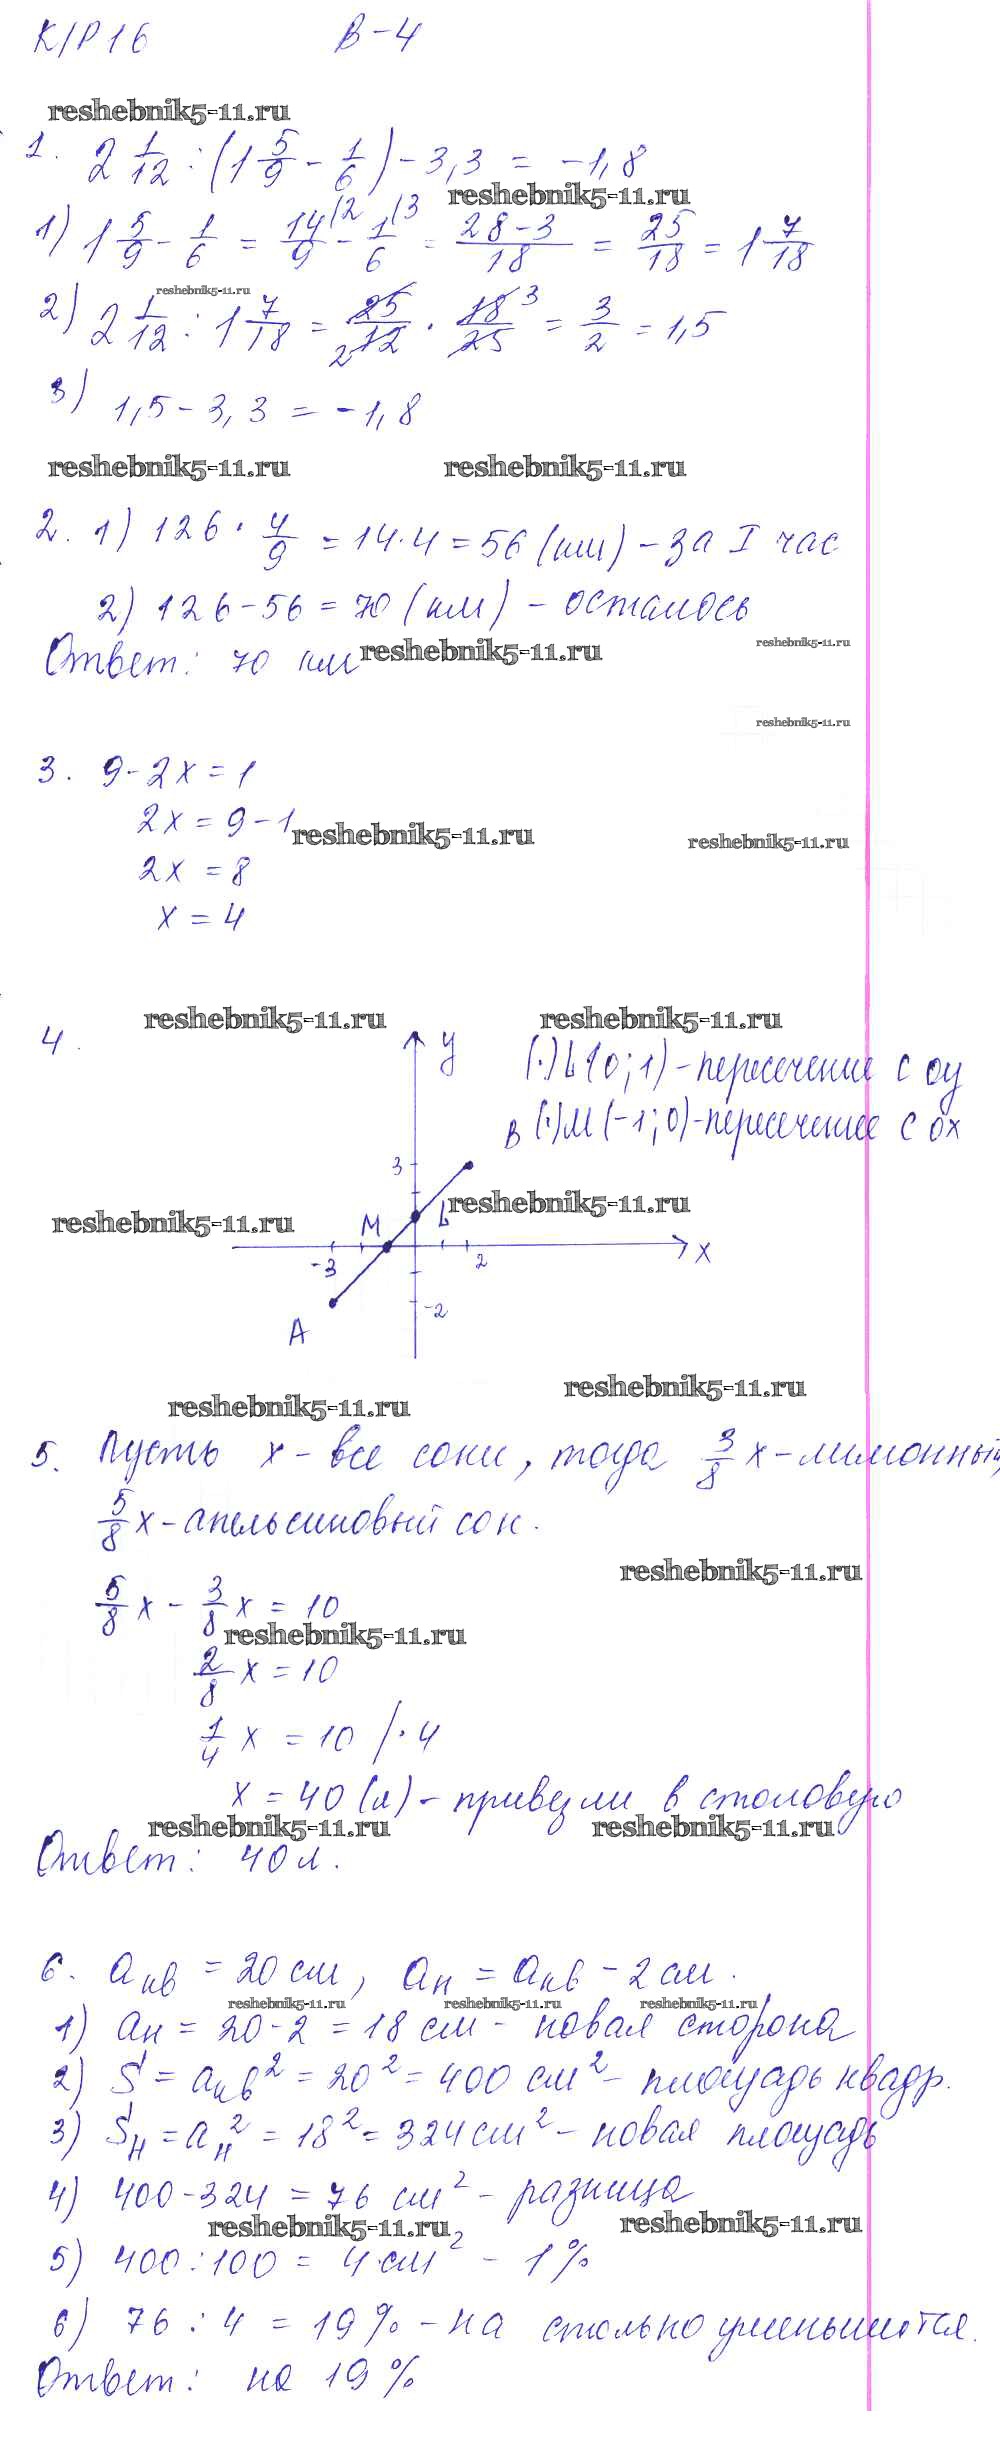 К/Р 16 В-4
reshebnik5-11.ru
1. 2 1/12 : (1 5/9 - 1/6) - 3,3 = -1,8
reshebnik5-11.ru
1) 1 5/9 - 1/6 = 14/9 (2 - 1/6 (3 = 28-3/18 = 25/18 = 1 7/18
reshebnik5-11.ru
2) 2 1/12 : 1 7/18 = 25/12 2 · 18/25 3 = 3/2 = 1,5
3) 1,5 - 3,3 = -1,8
reshebnik5-11.ru reshebnik5-11.ru
2. 1) 126 · 4/9 = 14·4 = 56 (км) - за I час
2) 126 - 56 = 70 (км) - осталось
Ответ: 70 км
reshebnik5-11.ru reshebnik5-11.ru
reshebnik5-11.ru
3. 9 - 2x = 1
2x = 9 - 1
reshebnik5-11.ru reshebnik5-11.ru
2x = 8
x = 4
reshebnik5-11.ru reshebnik5-11.ru
4. y
(·) L (0; 1) - пересечение с oy
В (·) М (-1; 0) - пересечение с ox
3
reshebnik5-11.ru М L reshebnik5-11.ru
-3 2 x
-2
А
reshebnik5-11.ru reshebnik5-11.ru
5. Пусть x - все соки, тогда 3/8 x - лимонный,
5/8 x - апельсиновый сок.
reshebnik5-11.ru
5/8 x - 3/8 x = 10
reshebnik5-11.ru
2/8 x = 10
1/4 x = 10 /· 4
x = 40 (л) - привезли в столовую
reshebnik5-11.ru reshebnik5-11.ru
Ответ: 40 л.
6. aкв = 20 см, aн = aкв - 2 см.
reshebnik5-11.ru reshebnik5-11.ru reshebnik5-11.ru
1) aн = 20 - 2 = 18 см - новая сторона
2) S = aкв² = 20² = 400 см² - площадь квадр.
3) Sн = aн² = 18² = 324 см² - новая площадь
4) 400 - 324 = 76 см² - разница
reshebnik5-11.ru reshebnik5-11.ru
5) 400 : 100 = 4 см² - 1%
6) 76 : 4 = 19% - на столько уменьшится.
Ответ: на 19%